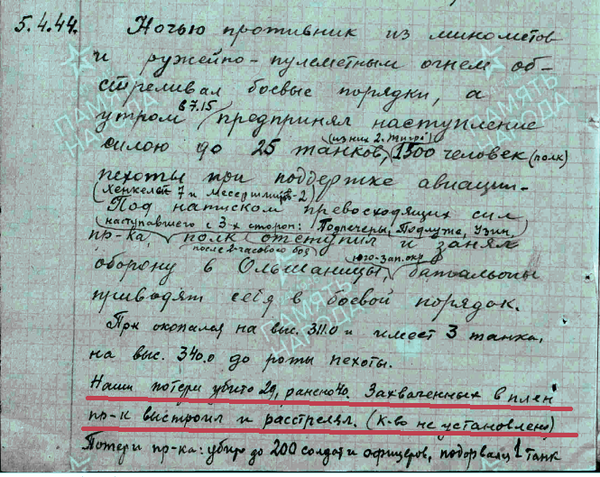 5.4.44. Ночью противник из минометов
и ружейно-пулеметным огнем об-
стреливал боевые порядки, а
в 7.15
утром предпринял наступление
(из них 2 "Тигра")
силою до 25 танков, 1500 человек (полк)
пехоты при поддержке авиации-
(Хенкелей 7 и Мессершмитт-2)
Под натиском превосходящих сил
(наступавшего с 3-х сторон: Подпечеры, Подлуже, Узин)
пр-ка, полк отступил и занял
после 2-часового боя
юго-зап. окр
оборону в Ольшаницы, батальоны
приводят себя в боевой порядок.
Пр-к окопался на выс. 311.0 и имеет 3 танка,
на выс. 340.0 до роты пехоты.
Наши потери убито 29, ранено 40. Захваченных в плен
пр-к выстроил и расстрелял. (к-во не установлено)
Потери пр-ка: убито до 200 солдат и офицеров, подорвался 1 танк
ПАМЯТЬ
НАРОДА
ПАМЯТЬ
НАРОДА
ПАМЯТЬ
НАРОДА